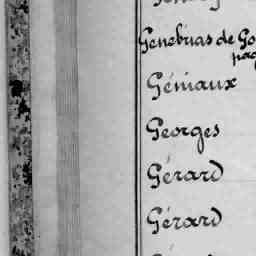 Genebrias de Go
Géniaux
Georges
Gérard
Gérard